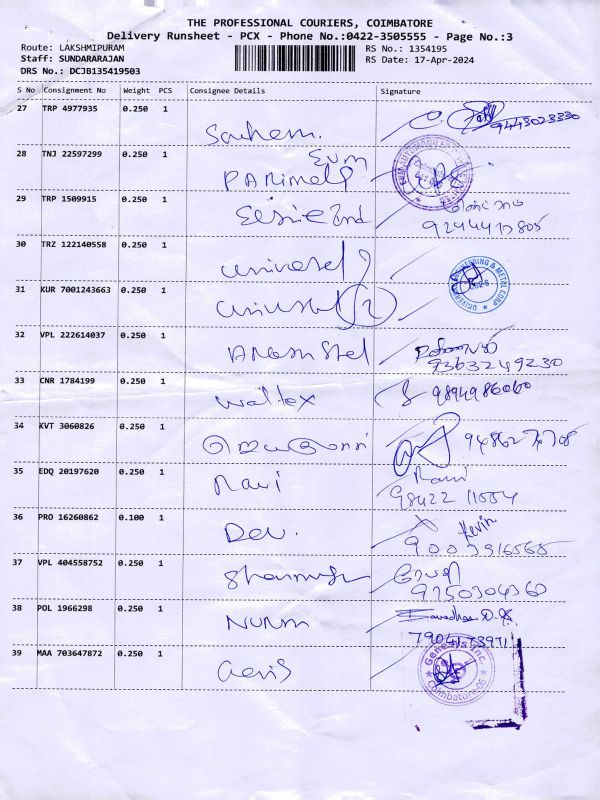 THE PROFESSIONAL COURIERS, COIMBATORE
Delivery Runsheet - PCX - Phone No.:0422-3505555 - Page No.:3
Route: LAKSHMIPURAM
RS No.: 1354195
Staff: SUNDARARAJAN
RS Date: 17-Apr-2024
DRS No.: DCJB135419503
S No Consignment No Weight PCS Consignee Details Signature
27 TRP 4977935 0.250 1
9443023330
28 TNJ 22597299 0.250 1
29 TRP 1509915 0.250 1
9244417805
30 TRZ 122140558 0.250 1 universal
31 KUR 7001243663 0.250 1 universal (2)
ENGINEERING & METAL CORP
32 VPL 222614037 0.250 1
9363249230
33 CNR 1784199 0.250 1 waltex 9894986060
34 KVT 3060826 0.250 1
35 EDQ 20197620 0.250 1 Ravi Ravi
98422 11554
36 PRO 16260862 0.100 1 Dev. Kevin
37 VPL 404558752 0.250 1
9750304360
38 POL 1966298 0.250 1
39 MAA 703647872 0.250 1
Genesis Inc.
Coimbatore-06